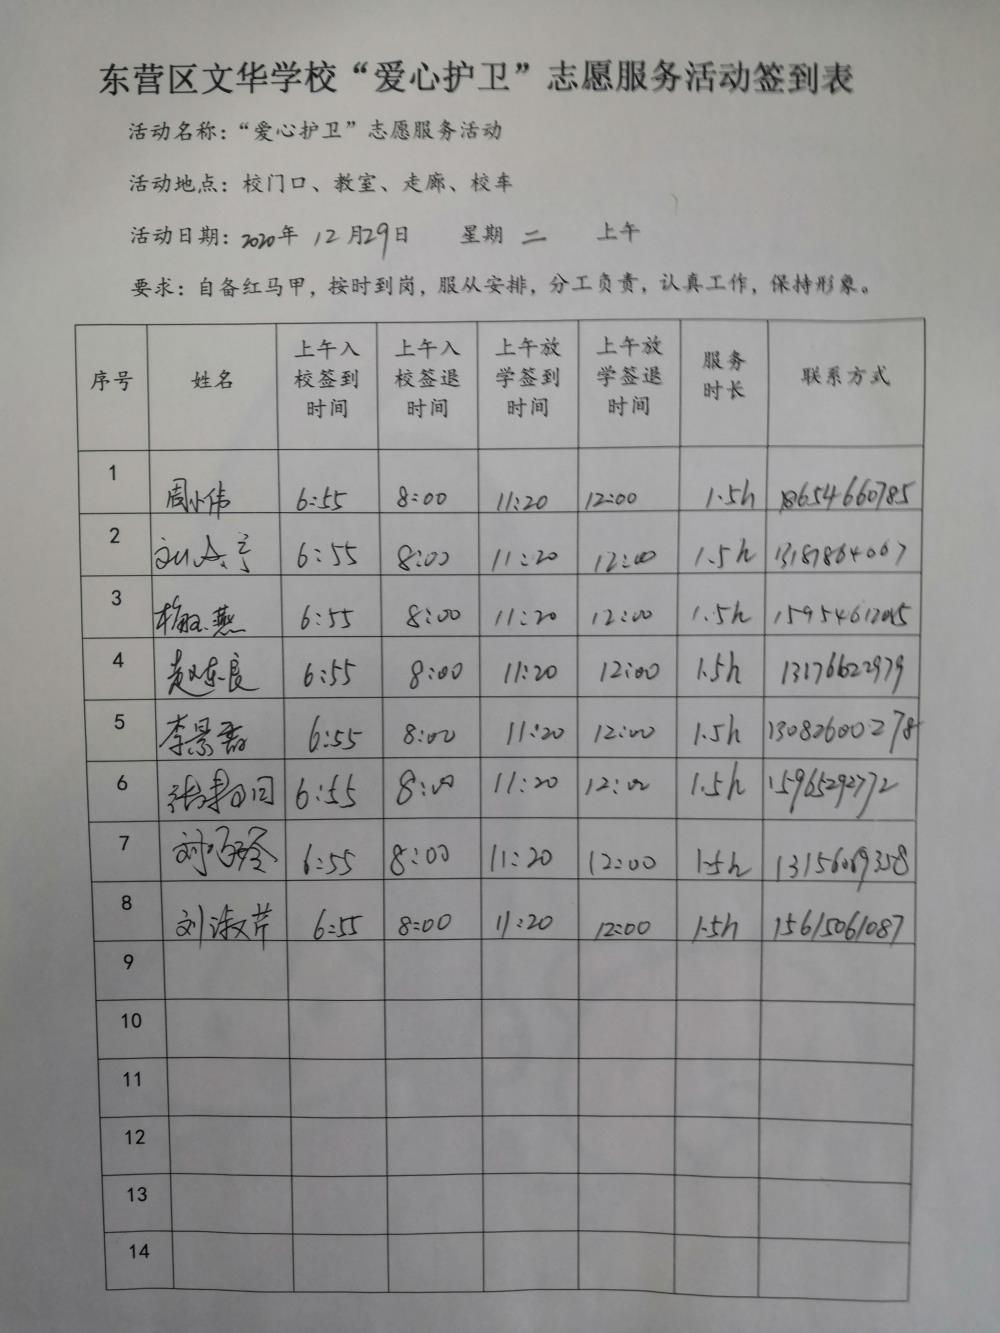 东营区文华学校“爱心护卫”志愿服务活动签到表
活动名称：“爱心护卫”志愿服务活动
活动地点：校门口、教室、走廊、校车
活动日期：2020年 12月29日 星期 二 上午
要求：自备红马甲，按时到岗，服从安排，分工负责，认真工作，保持形象。
序号 姓名 上午入校签到时间 上午入校签退时间 上午放学签到时间 上午放学签退时间 服务时长 联系方式
1 周小伟 6:55 8:00 11:20 12:00 1.5h 18654660785
2 6:55 8:00 11:20 12:00 1.5h
3 梅玉燕 6:55 8:00 11:20 12:00 1.5h
4 赵东良 6:55 8:00 11:20 12:00 1.5h 13176622979
5 李景磊 6:55 8:00 11:20 12:00 1.5h 13082600278
6 6:55 8:00 11:20 12:00 1.5h 15965292772
7 6:55 8:00 11:20 12:00 1.5h
8 刘淑芹 6:55 8:00 11:20 12:00 1.5h 15615061087
9
10
11
12
13
14